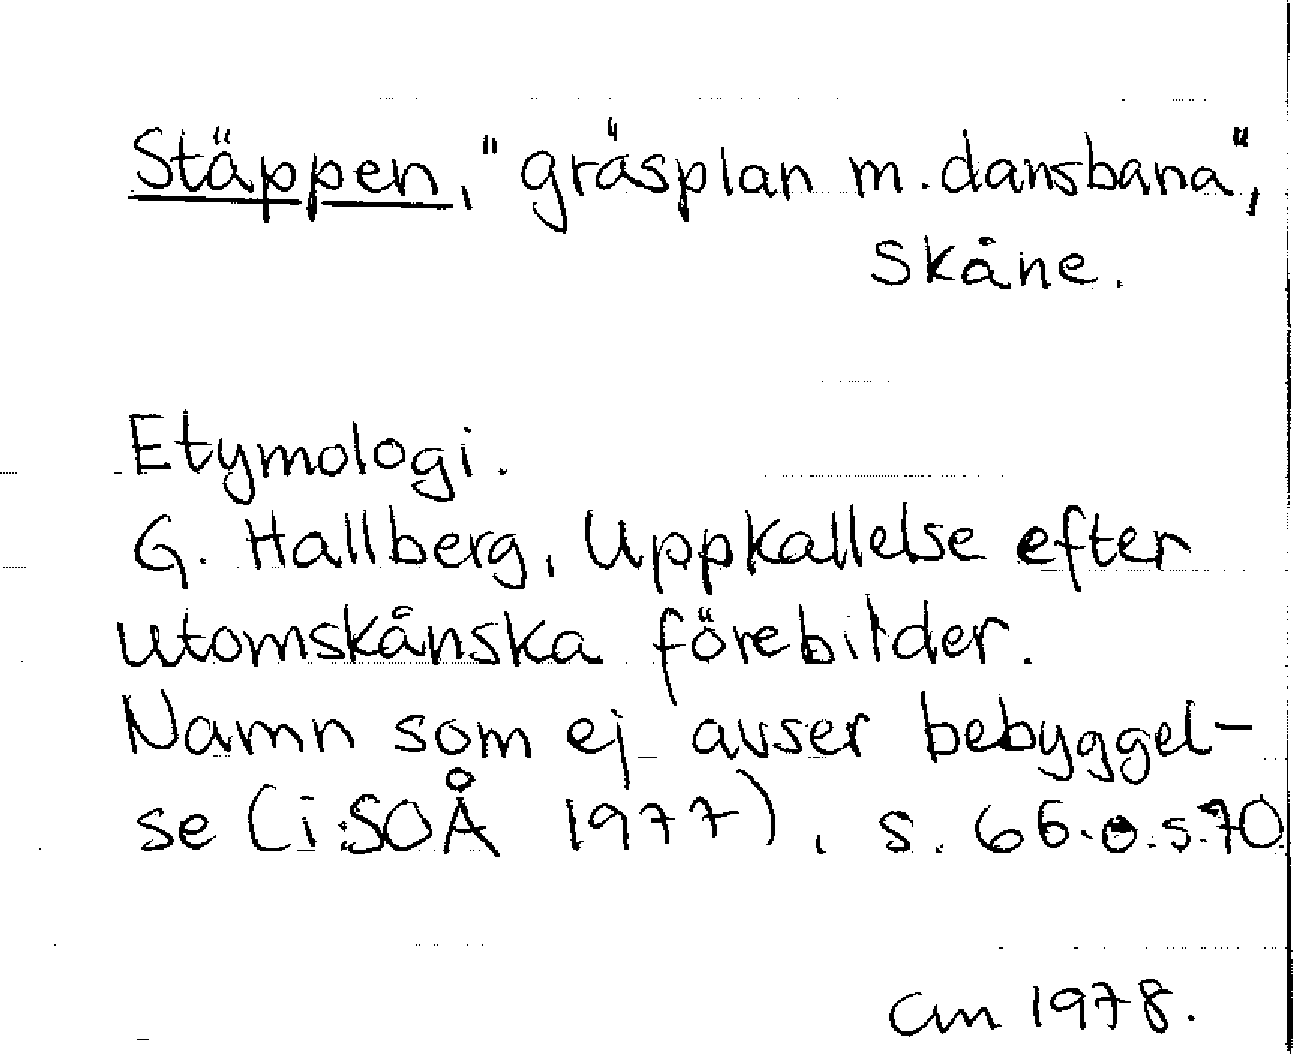 Stäppen, "gräsplan m. dansbana",
Skåne.
Etymologi.
G. Hallberg, Uppkallelse efter
utomskånska förebilder.
Namn som ej avser bebyggel-
se (i: SOÅ 1977), s. 66 o. s. 70
Cm 1978.